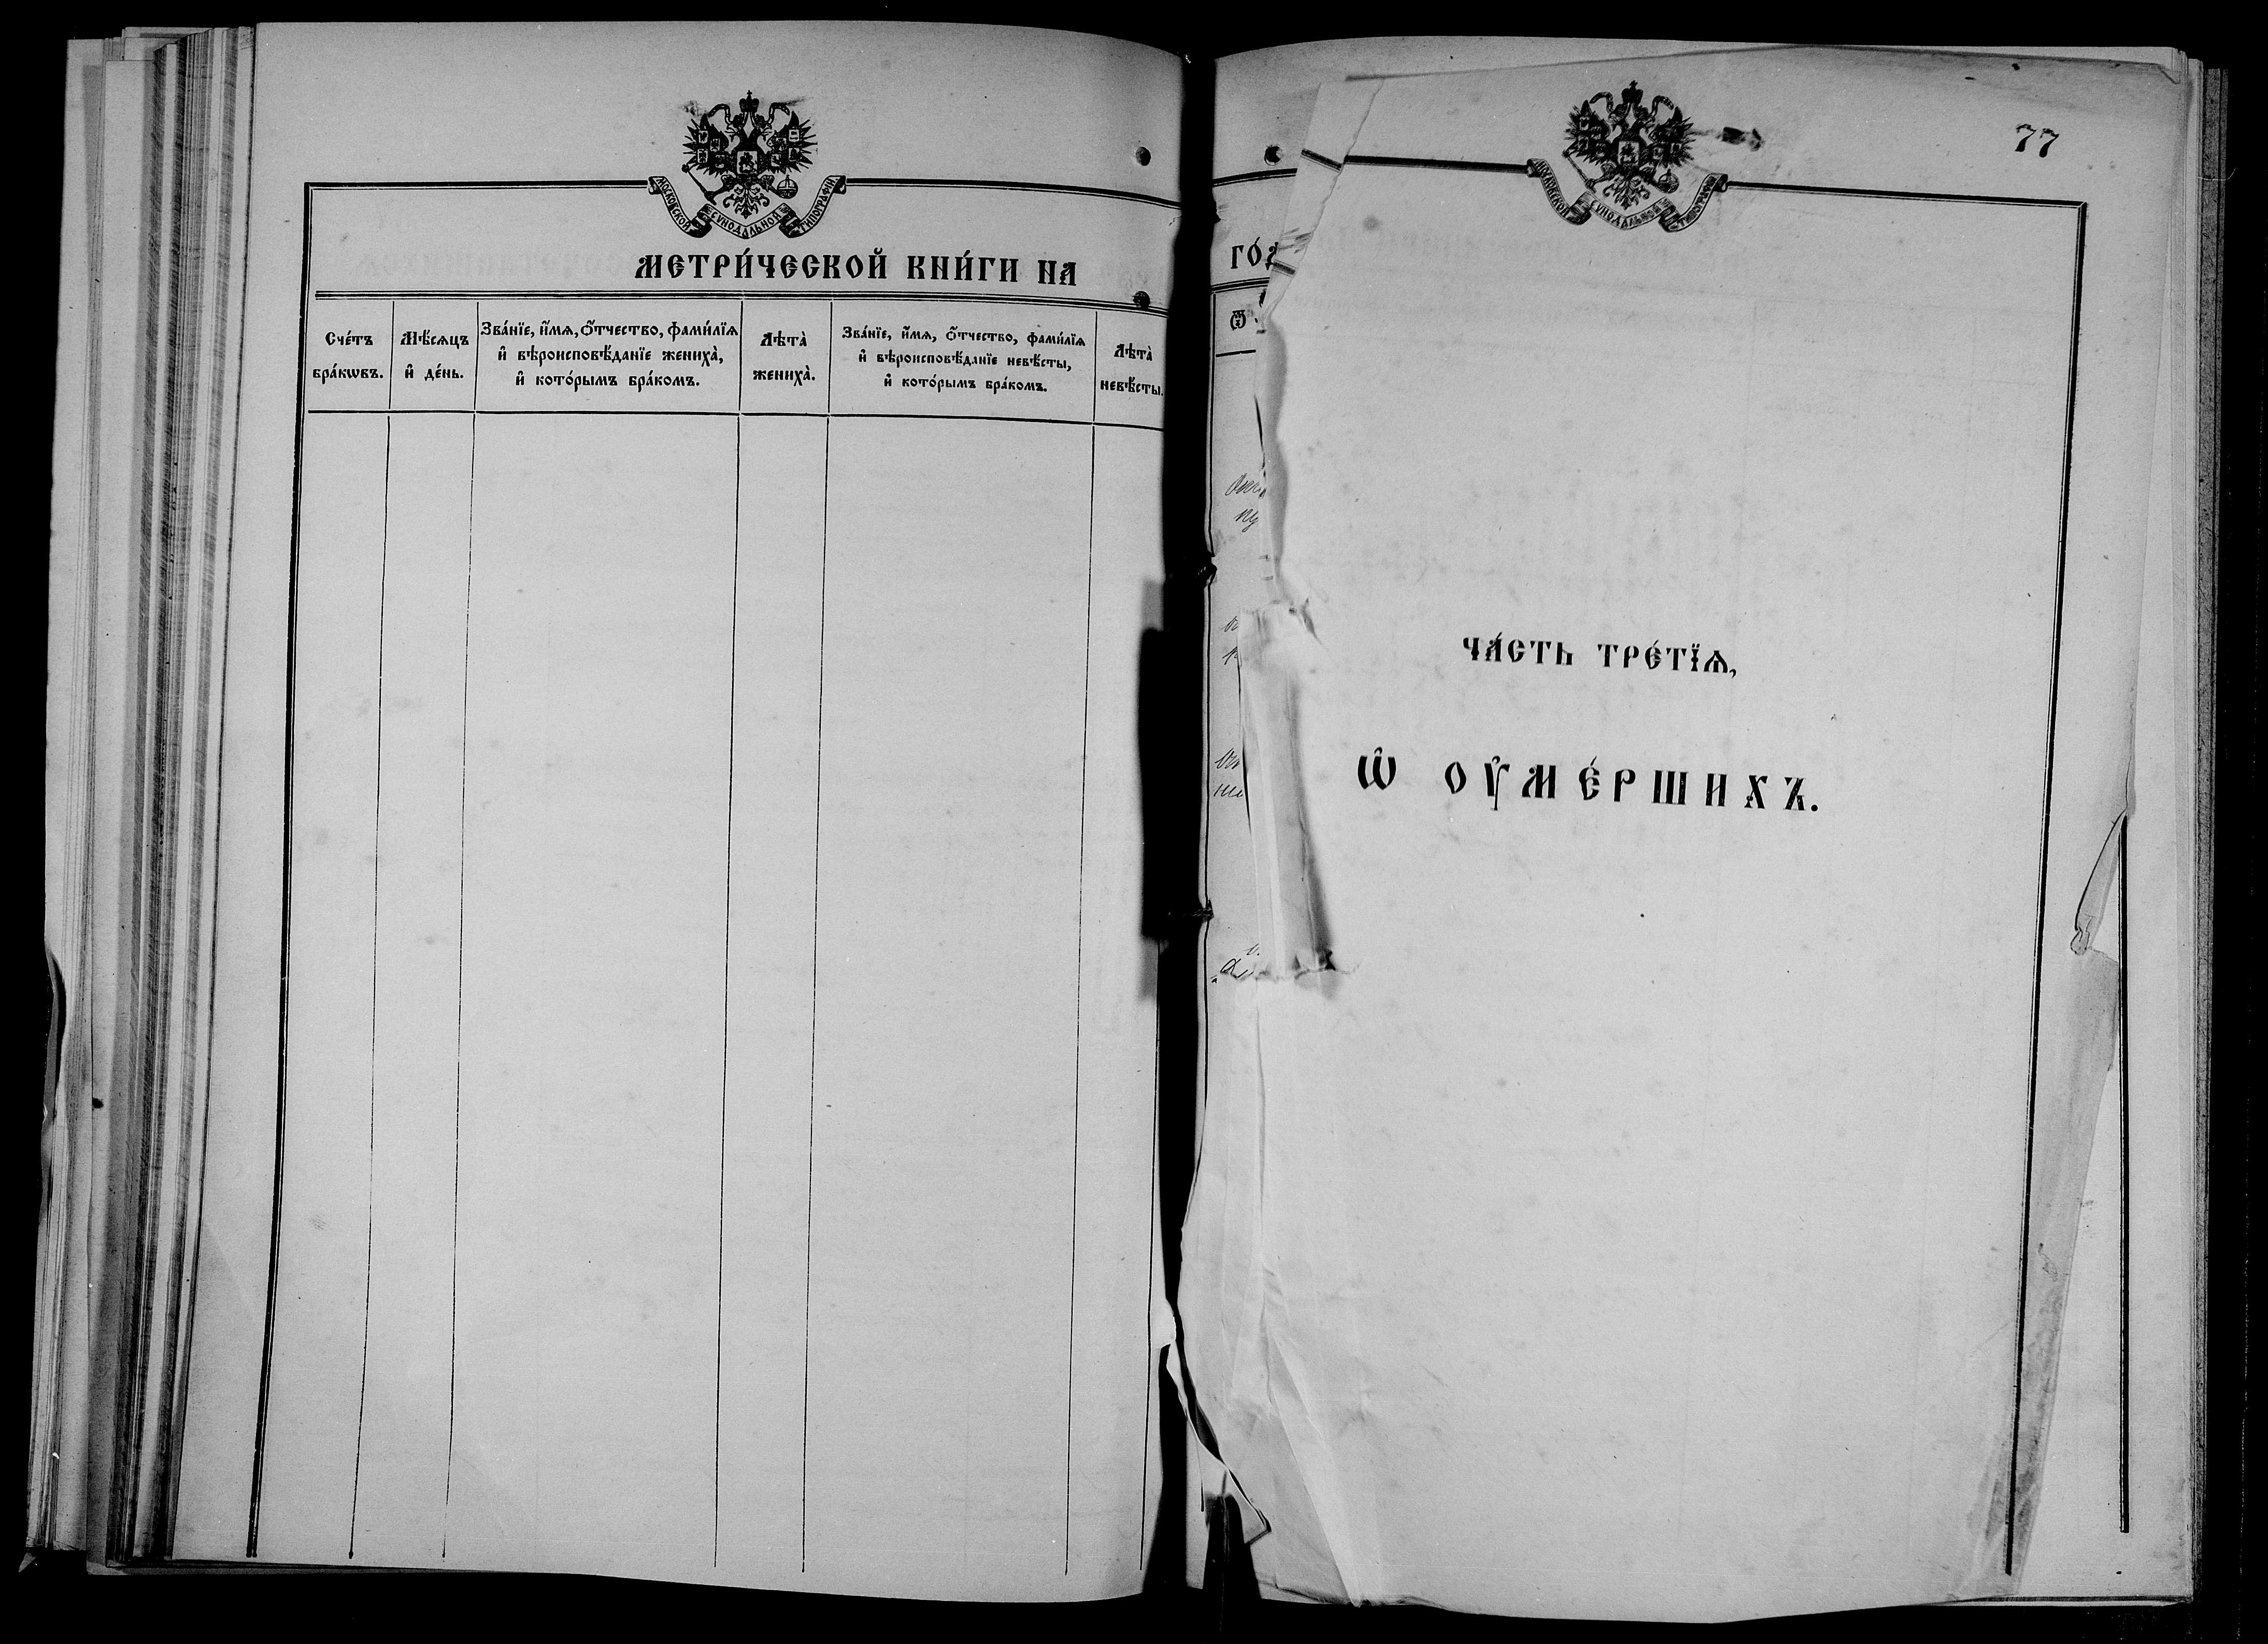 МОСКОВСКОЙ СѴНОДАЛЬНОЙ ТИПОГРАФІИ
МЕТРИ́ЧЕСКОЙ КНИ́ГИ НА
Сче́тъ
бра́кѡвъ.
Мѣ́сѧцъ
и҆ де́нь.
Зва́нїе, и҆́мѧ, ѻ҆́тчество, фами́лїѧ
и҆ вѣроисповѣ́данїе жениха̀,
и҆ кото́рымъ бра́комъ.
Лѣта̀
жениха̀.
Зва́нїе, и҆́мѧ, ѻ҆́тчество, фами́лїѧ
и҆ вѣроисповѣ́данїе невѣ́сты,
и҆ кото́рымъ бра́комъ.
Лѣта̀
невѣ́сты.
МОСКОВСКОЙ СѴНОДАЛЬНОЙ ТИПОГРАФІИ
77
ЧА́СТЬ ТРЕ́ТЇѦ,
Ѡ҆ ОУ҆МЕ́РШИХЪ.